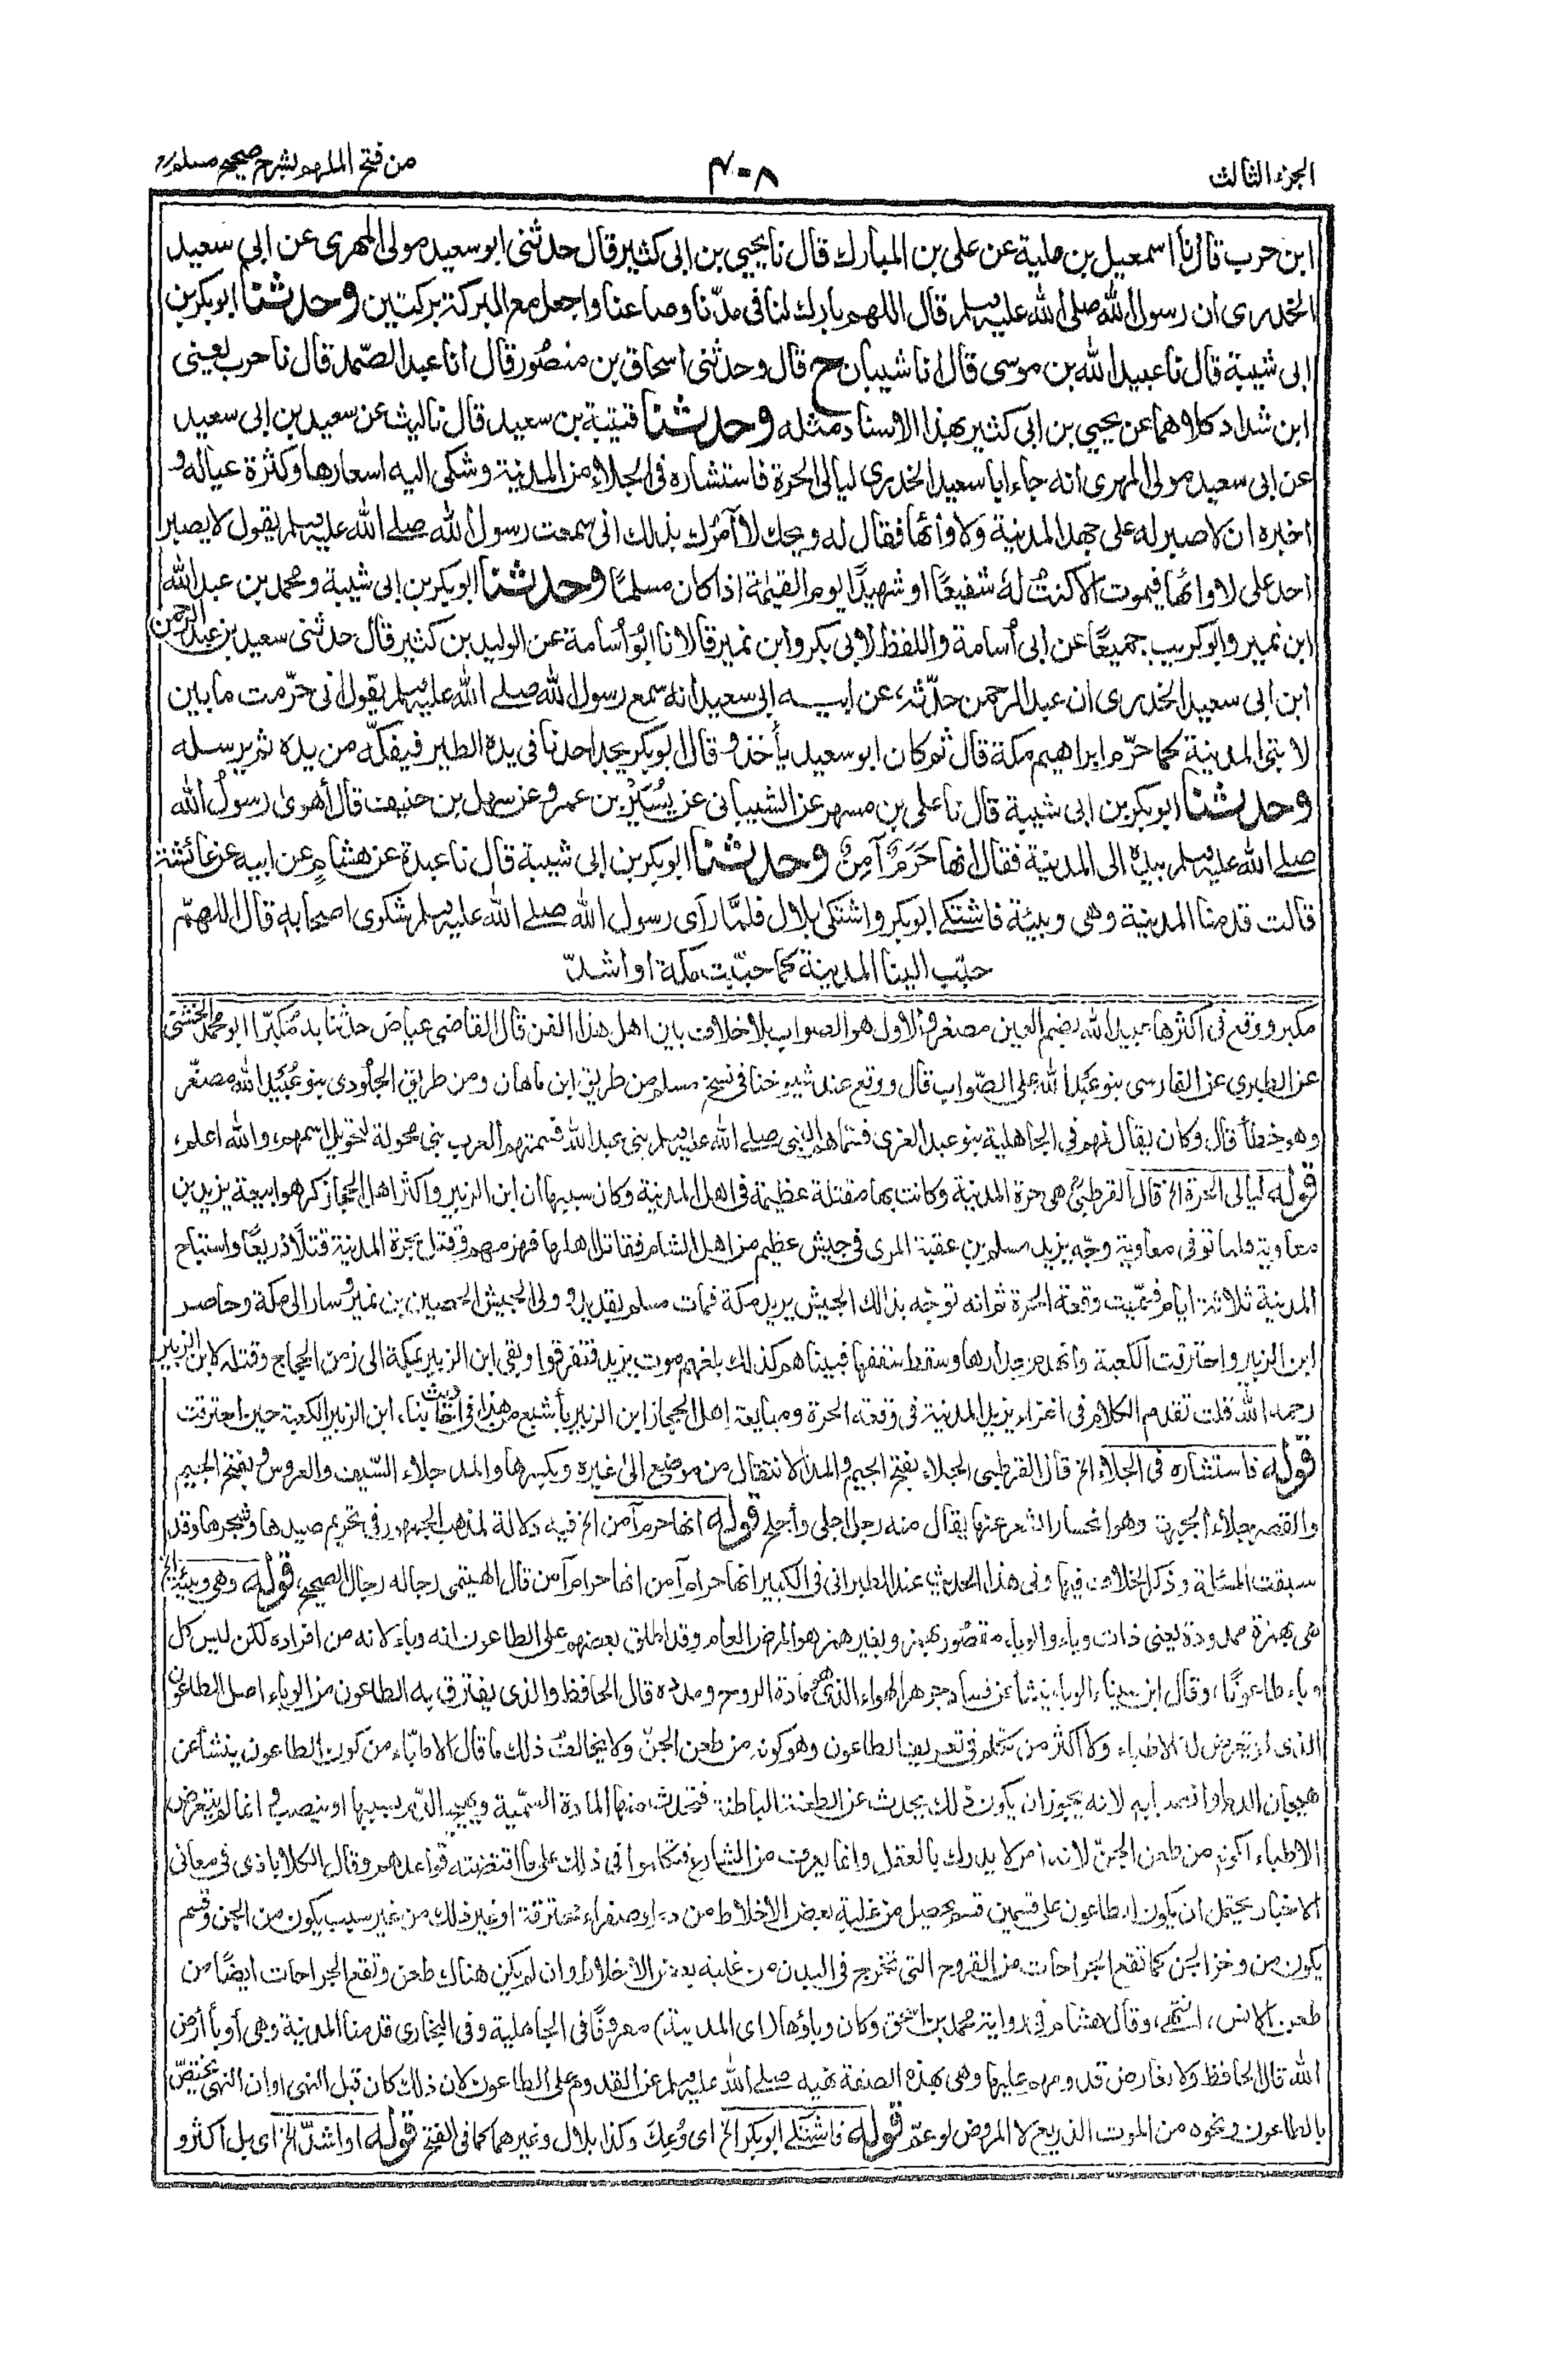 الجزء الثالث
٤٠٨
من فتح الملهم بشرح صحيح مسلم
ابن حرب قال نا اسمعيل بن علية عن علي بن المبارك قال نا يحيى بن ابي كثير قال حدثني ابو سعيد مولى المهري عن ابي سعيد
الخدري ان رسول الله صلى الله عليه وسلم قال اللهم بارك لنا في مدّنا وصاعنا واجعل مع البركة بركتين وحدثنا ابوبكر بن
ابي شيبة قال نا عبيد الله بن موسى قال انا شيبان ح قال وحدثني اسحاق بن منصور قال انا عبد الصّمد قال نا حرب يعني
ابن شداد كلاهما عن يحيى بن ابي كثير بهذا الاسناد مثله وحدثنا قتيبة بن سعيد قال نا ليث عن سعيد بن ابي سعيد
عن ابي سعيد مولى المهري انه جاء ابا سعيد الخدري ليالي الحرة فاستشاره في الجلاء من المدينة وشكى اليه اسعارها وكثرة عياله و
اخبره ان لا صبر له على جهد المدينة ولاوائها فقال له ويحك لا آمرك بذلك اني سمعت رسول الله صلے الله عليه وسلم يقول لا يصبر
احد على لاوائها فيموت الا كنتُ لهٗ شفيعًا او شهيدًا يوم القيٰمة اذا كان مسلمًا وحدثنا ابوبكر بن ابي شيبة ومحمد بن عبد الله
ابن نمير وابو كريب جميعًا عن ابي اسامة واللفظ لابي بكر وابن نمير قالا نا ابو اسامة عن الوليد بن كثير قال حدثني سعيد بن عبد الرحمن
ابن ابي سعيد الخدري ان عبد الرحمن حدّثه عن ابيه ابي سعيد انه سمع رسول الله صلے الله عليه وسلم يقول اني حرّمت ما بين
لابتي المدينة كما حرّم ابراهيم مكة قال ثم كان ابو سعيد يأخذ و قال ابو بكر يجد احدنا في يده الطير فيفكّه من يده ثم يرسله
وحدثنا ابوبكر بن ابي شيبة قال نا علي بن مسهر عن الشيباني عن يُسَيْر بن عمرو عن سهل بن حنيف قال أهوى رسول الله
صلے الله عليه وسلم بيده الى المدينة فقال انها حَرَمٌ آمِنٌ وحدثنا ابوبكر بن ابي شيبة قال نا عبدة عن هشام عن ابيه عن عائشة
قالت قدمنا المدينة وهي وبيئة فاشتكے ابوبكر واشتكى بلال فلمّا رآى رسول الله صلے الله عليه وسلم شكوى اصحابه قال اللهمّ
حبّب الينا المدينة كما حبّبت مكة او اشدّ
مكبر ووقع في اكثرها عبيد الله بضم العين مصغر والاول هو الصواب بلا خلاف بين اهل هذا الفن قال القاضي عياض حدثنا به مكبّرا ابو محمد الخشني
عن الطبري عن الفارسي بنو عبد الله على الصّواب قال ووقع عند شيوخنا في نسخ مسلم من طريق ابن ماهان ومن طريق الجلودي بنو عُبَيد الله مصغّر
وهو خطأ قال وكان يقال لهم في الجاهلية بنو عبد العزى فسّماهم النبي صلے الله عليه وسلم بني عبد الله فسمتهم العرب بني محولة لتحويل اسمهم، والله اعلم،
قوله ليالي الحرة الخ قال القرطبي هي حرة المدينة وكانت بها مقتلة عظيمة في اهل المدينة وكان سببها ان ابن الزبير واكثر اهل الحجاز كرهوا بيعة يزيد بن
معاوية فلما توفي معاوية وجّه يزيد مسلم بن عقبة المري في جيش عظيم من اهل الشام فقاتل اهلها فهزمهم وقتل بحرة المدينة قتلًا ذريعًا واستباح
المدينة ثلاثة ايام فسمّيت وقعة الحرة ثم انه توجّه بذلك الجيش يريد مكة فمات مسلم بقديد و ولى الجيش الحصين بن نمير وسار الى مكة وحاصر
ابن الزبير واحترقت الكعبة وانهدم جدارها وسقط سقفها فبينا هم كذلك بلغهم موت يزيد فتفرقوا وبقي ابن الزبير بمكة الى زمن الحجاج وقتله لابن الزبير
رحمه الله قلت تقدم الكلام في اغزاء يزيد المدينة في وقعة الحرة ومبايعة اهل الحجاز ابن الزبير بأشبع من هذا في احاديث بناء ابن الزبير الكعبة حين احترقت
قوله فاستشاره في الجلاء الخ قال القرطبي الجلاء بفتح الجيم والمد الانتقال من موضع الى غيره وبكسرها والمد جلاء السّيف والعروس وبفتح الجيم
والقصر جلاء الجبهة وهو انحسار الشعر عنها يقال منه رجل اجلى وأجلح قوله انها حرم آمن الخ فيه دلالة لمذهب الجمهور في تحريم صيدها وشجرها وقد
سبقت المسئلة وذكر الخلاف فيها وفي هذا الحديث عند الطبراني في الكبير انها حرام آمن انها حرام آمن قال الهيتمي رجاله رجال الصحيح، قوله وهي وبيئة الخ
هي بهمزة ممدودة يعني ذات وباء والوباء مقصور بهمز وبغير همز هو المرض العام وقد اطلق بعضهم على الطاعون انه وباء لانه من افراده لكن ليس كل
وباء طاعونًا، وقال ابن سيناء الوباء ينشأ عن فساد جوهر الهواء الذي هو مادة الروح ومدده قال الحافظ والذي يفترق به الطاعون من الوباء اصل الطاعون
الذي لم يتعرض له الاطباء ولا اكثر من تكلم في تعريف الطاعون وهو كونه من طعن الجنّ ولا يخالف ذلك ما قال الاطبّاء من كون الطاعون ينشأ عن
هيجان الدم او انصبابه لانه يجوز ان يكون ذلك يحدث عن الطعنة الباطنة فتحدث منها المادة السّمّية ويهيج الدّم بسببها او ينصب و انما لم يتعرض
الاطباء لكونه من طعن الجنّ لانه امر لا يدرك بالعقل وانما يعرف من الشارع فتكلموا في ذلك على ما اقتضته قواعدهم وقال الكلاباذي في معاني
الاخبار يحتمل ان يكون الطاعون على قسمين قسم يحصل من غلبة بعض الأخلاط من دم او صفراء محترقة او غير ذلك من غير سبب يكون من الجن وقسم
يكون من وخز الجن كما تقع الجراحات من القروح التي تخرج في البدن من غلبة بعض الأخلاط وان لم يكن هناك طعن وتقع الجراحات ايضًا من
طعن الانس، انتهٰے، وقال هشام في رواية محمد بن اسحٰق وكان وباؤها (اى المدينة) معروفًا في الجاهلية وفي البخاري قدمنا المدينة وهي أوبأ أرض
الله قال الحافظ ولا يعارض قدومه عليها وهي بهذه الصفة نهيه صلے الله عليه وسلم عن القدوم على الطاعون لان ذلك كان قبل النهى او ان النهى يختصّ
بالطاعون ونحوه من الموت الذريع لا المرض لو عمّ قوله فاشتكٰے ابوبكر الخ اى وُعِكَ وكذا بلال وغيرهما كما في الفتح قوله او اشدّ الخ اى بل اكثر و